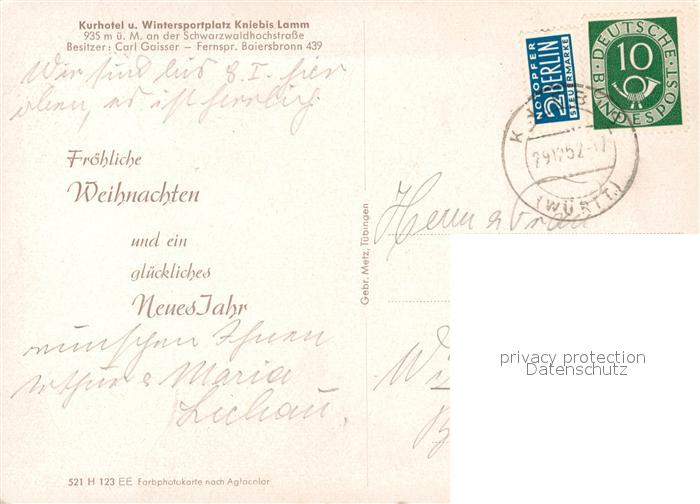 Kurhotel u. Wintersportplatz Kniebis Lamm
935 m ü. M. an der Schwarzwaldhochstraße
Besitzer: Carl Gaisser – Fernspr. Baiersbronn 439
Wir sind bis 8. I. hier
oben, es ist herrlich
Fröhliche
Weihnachten
und ein
glückliches
Neues Jahr
wünschen Ihnen
Arthur & Maria
Lichau.
521 H 123 EE Farbphotokarte nach Agfacolor
Gebr. Metz, Tübingen
NOTOPFER
2 BERLIN
STEUERMARKE
DEUTSCHE BUNDESPOST
10
29.12.52.-17
(WÜRTT.)
Herrn & Frau
privacy protection
Datenschutz